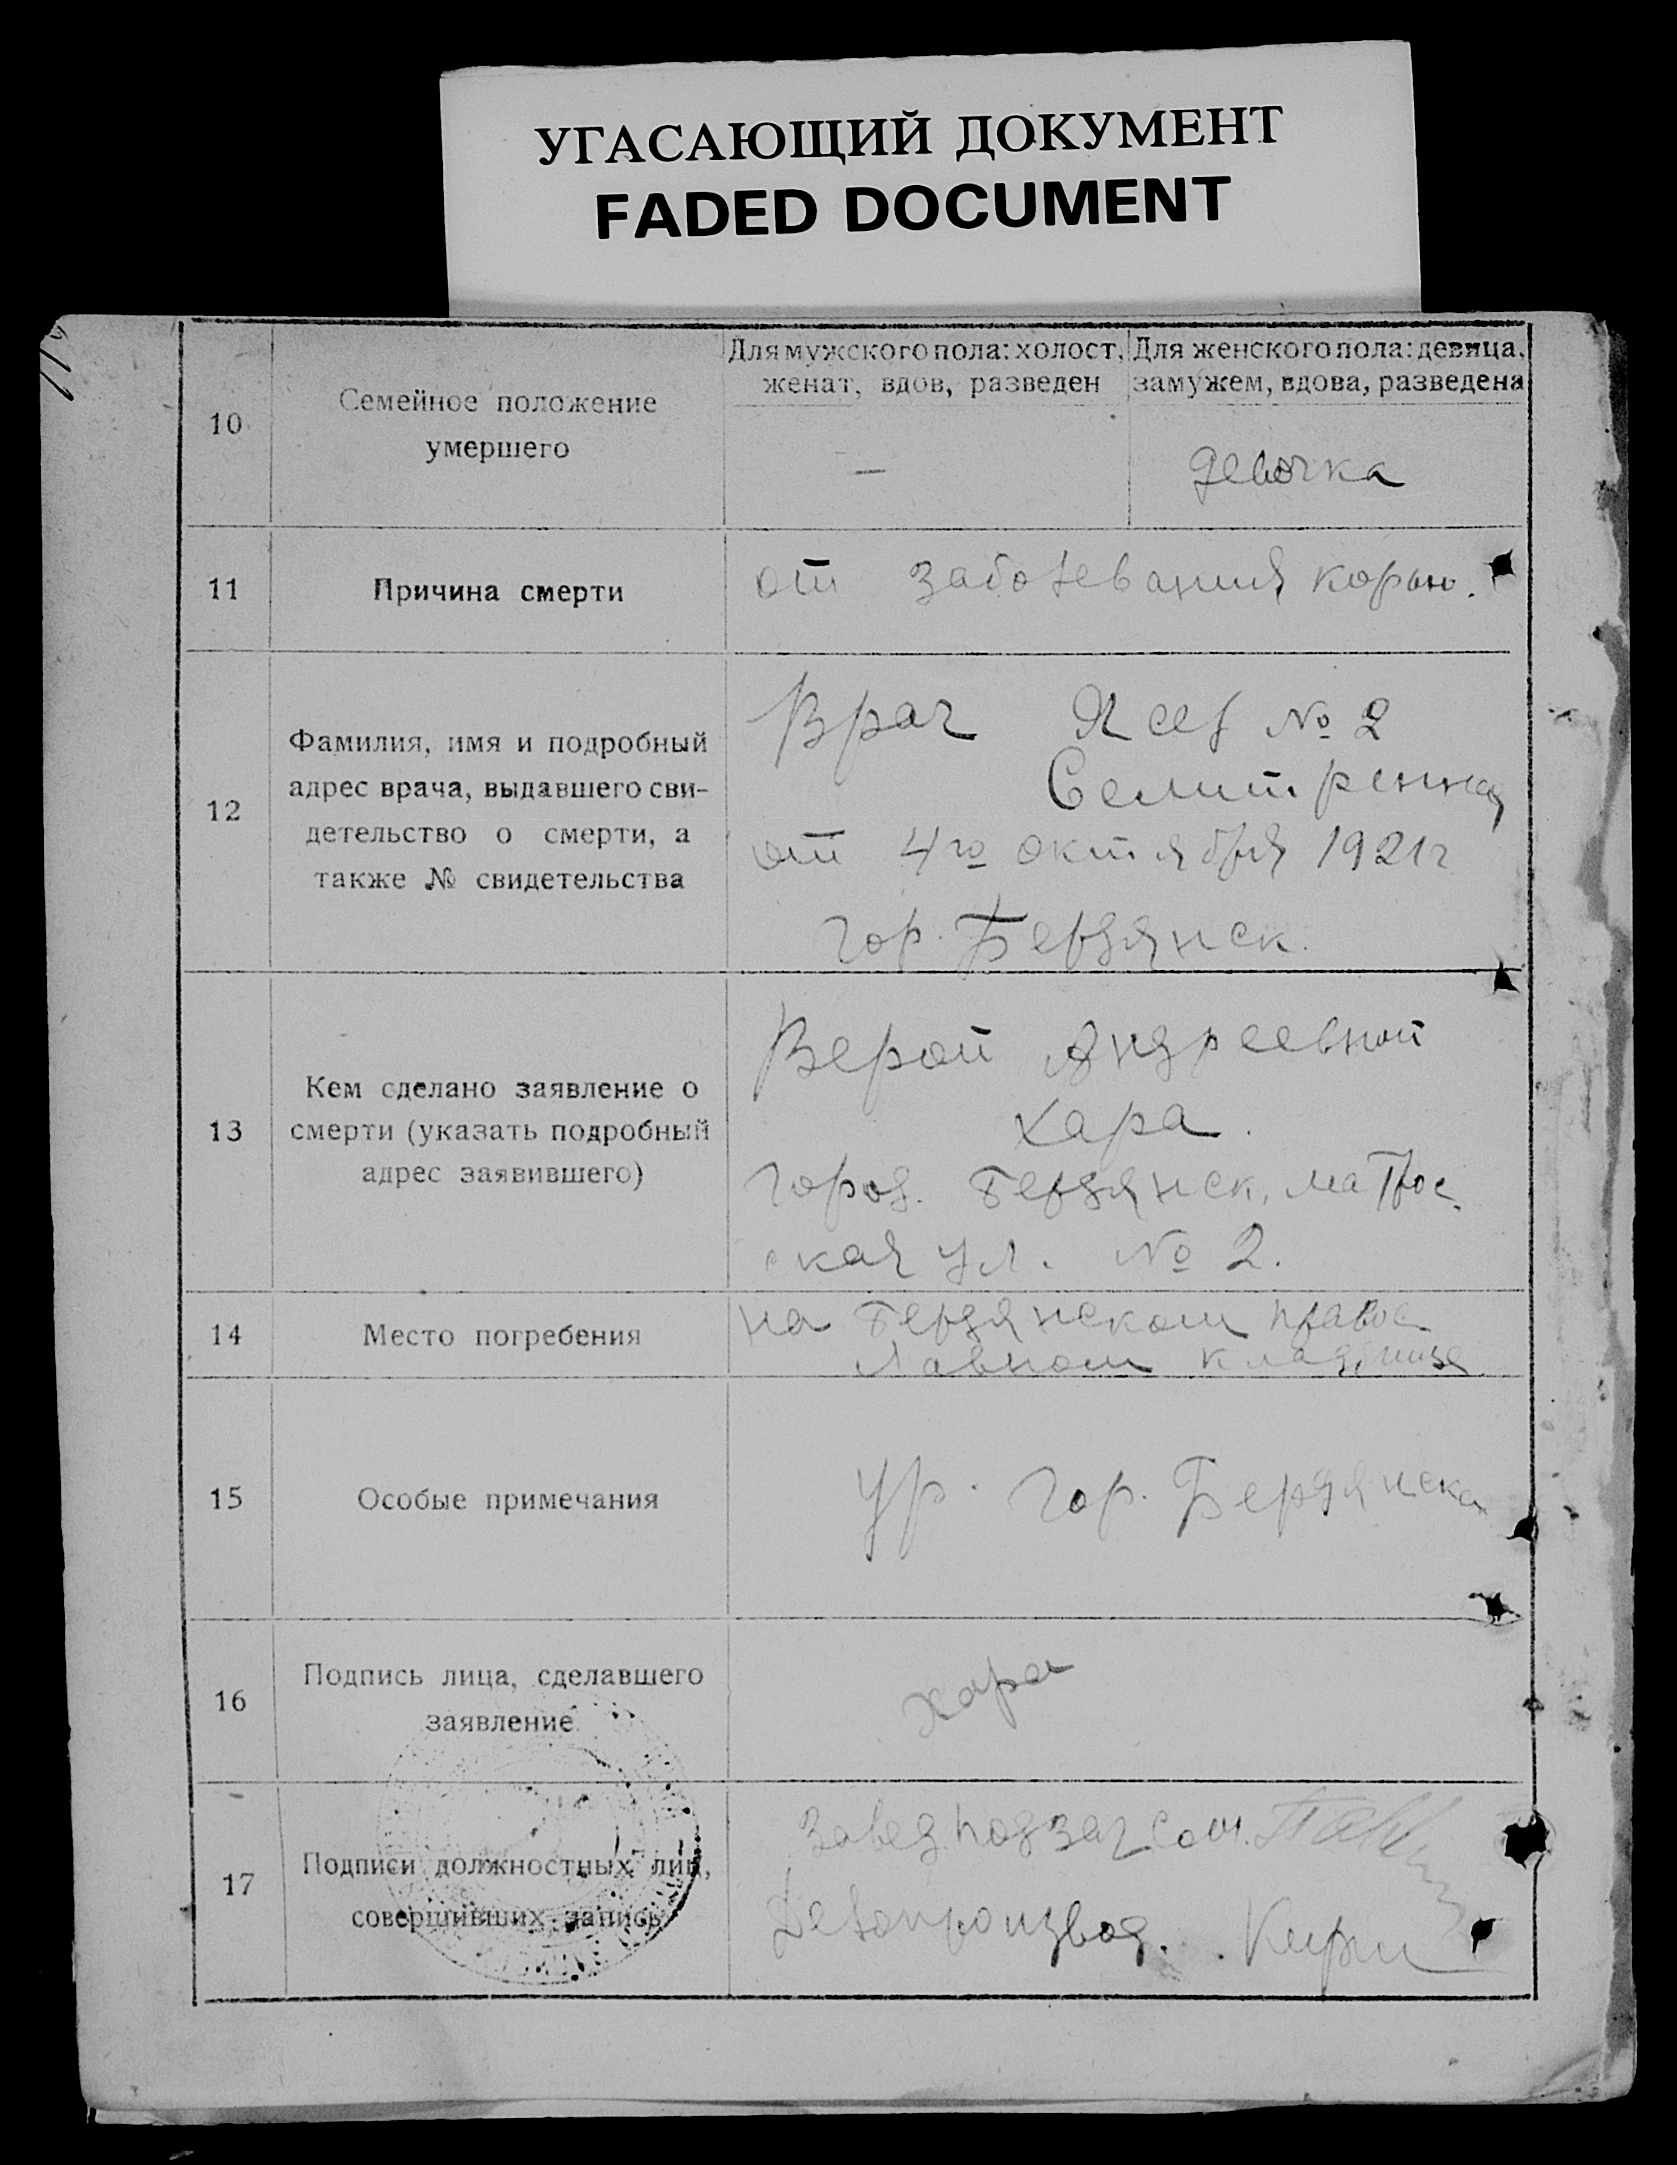 УГАСАЮЩИЙ ДОКУМЕНТ
FADED DOCUMENT
10
Семейное положение
умершего
Для мужского пола: холост,
женат, вдов, разведен
—
Для женского пола: девица,
замужем, вдова, разведена
девочка
11
Причина смерти
от заболевания корью.
12
Фамилия, имя и подробный
адрес врача, выдавшего сви-
детельство о смерти, а
также № свидетельства
Врач Ясел № 2
Селитренная
от 4го октября 1921г
гор. Бердянск.
13
Кем сделано заявление о
смерти (указать подробный
адрес заявившего)
Верой Андреевной
Хара.
город. Бердянск, матрос
ская ул. № 2.
14
Место погребения
на Бердянском правос
лавном кладбище
15
Особые примечания
ур. гор. Бердянска
16
Подпись лица, сделавшего
заявление
Хара
17
Подписи должностных лиц,
совершивших запись
Завед подзагсом.
Делопроизвод.